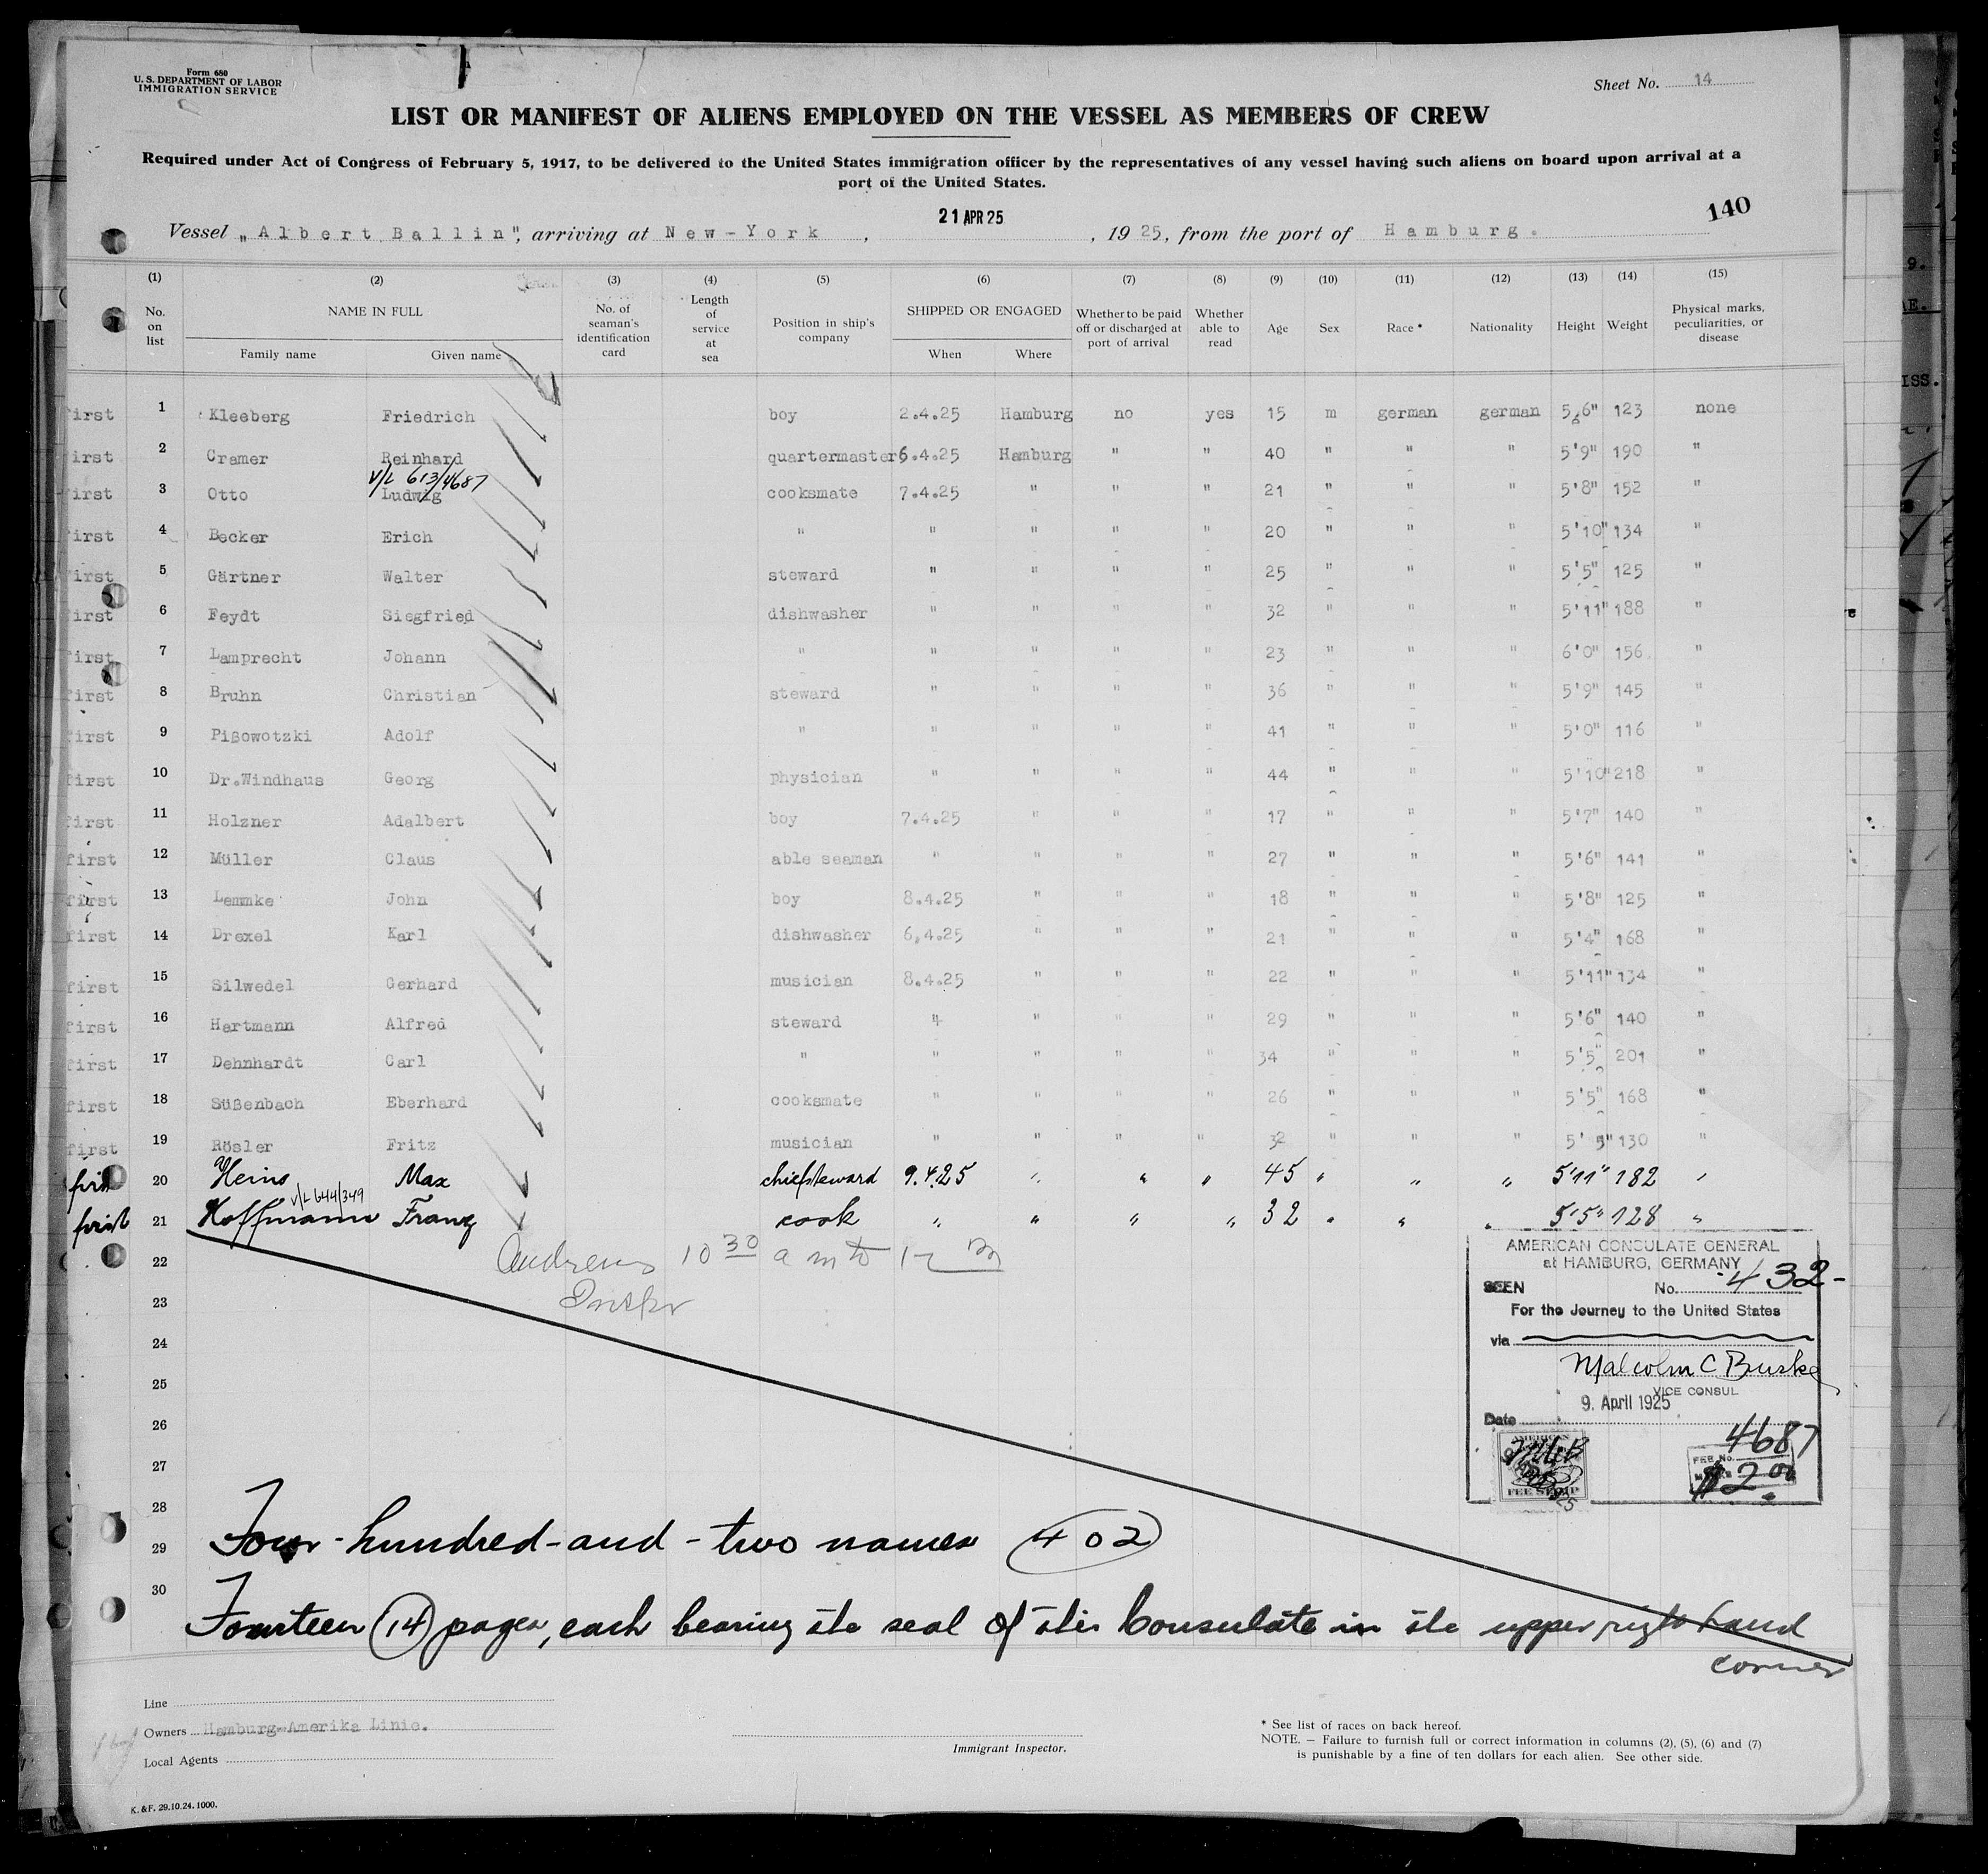 Form 680
U. S. DEPARTMENT OF LABOR
IMMIGRATION SERVICE
Sheet No. 14
LIST OR MANIFEST OF ALIENS EMPLOYED ON THE VESSEL AS MEMBERS OF CREW
Required under Act of Congress of February 5, 1917, to be delivered to the United States immigration officer by the representatives of any vessel having such aliens on board upon arrival at a
port of the United States.
140
21 APR 25
Vessel „Albert Ballin", arriving at New-York , , 1925, from the port of Hamburg.
(1) (2) (3) (4) (5) (6) (7) (8) (9) (10) (11) (12) (13) (14) (15)
No. on list NAME IN FULL Family name Given name No. of seaman's identification card Length of service at sea Position in ship's company SHIPPED OR ENGAGED When Where Whether to be paid off or discharged at port of arrival Whether able to read Age Sex Race * Nationality Height Weight Physical marks, peculiarities, or disease
first 1 Kleeberg Friedrich boy 2.4.25 Hamburg no yes 15 m german german 5'6" 123 none
first 2 Cramer Reinhard quartermaster 6.4.25 Hamburg " " 40 " " " 5'9" 190 "
V/L 613/4687
first 3 Otto Ludwig cooksmate 7.4.25 " " " 21 " " " 5'8" 152 "
first 4 Becker Erich " " " " " 20 " " " 5'10" 134 "
first 5 Gärtner Walter steward " " " " 25 " " " 5'5" 125 "
first 6 Feydt Siegfried dishwasher " " " " 32 " " " 5'11" 188 "
first 7 Lamprecht Johann " " " " " 23 " " " 6'0" 156 "
first 8 Bruhn Christian steward " " " " 36 " " " 5'9" 145 "
first 9 Pißowotzki Adolf " " " " " 41 " " " 5'0" 116 "
first 10 Dr.Windhaus Georg physician " " " " 44 " " " 5'10" 218 "
first 11 Holzner Adalbert boy 7.4.25 " " " 17 " " " 5'7" 140 "
first 12 Müller Claus able seaman " " " " 27 " " " 5'6" 141 "
first 13 Lemmke John boy 8.4.25 " " " 18 " " " 5'8" 125 "
first 14 Drexel Karl dishwasher 6.4.25 " " " 21 " " " 5'4" 168 "
first 15 Silwedel Gerhard musician 8.4.25 " " " 22 " " " 5'11" 134 "
first 16 Hartmann Alfred steward " " " " 29 " " " 5'6" 140 "
first 17 Dehnhardt Carl " " " " " 34 " " " 5'5" 201 "
first 18 Süßenbach Eberhard cooksmate " " " " 26 " " " 5'5" 168 "
first 19 Rösler Fritz musician " " " " 32 " " " 5' 5" 130 "
first 20 Heins Max chiefsteward 9.4.25 " " " 45 " " " 5'11" 182 "
V/L 644/349
first 21 Hoffmann Franz cook " " " " 32 " " " 5'5" 128 "
22
Andrews 10 30 a m to 12 M
23
Inspr
24
25
26
27
28
29
30
AMERICAN CONSULATE GENERAL
at HAMBURG, GERMANY
SEEN No. 432-
For the Journey to the United States
via
Malcolm C Burke
VICE CONSUL
9. April 1925
Date
4687
FEE No.
$2.00
AMERICAN
FEE STAMP
Four-hundred-and-two names 402
Fourteen (14) pages, each bearing the seal of this Consulate in the upper right hand
corner
Line
Owners Hamburg-Amerika Linie.
Local Agents
Immigrant Inspector.
* See list of races on back hereof.
NOTE. — Failure to furnish full or correct information in columns (2), (5), (6) and (7)
is punishable by a fine of ten dollars for each alien. See other side.
K. & F. 29.10.24. 1000.